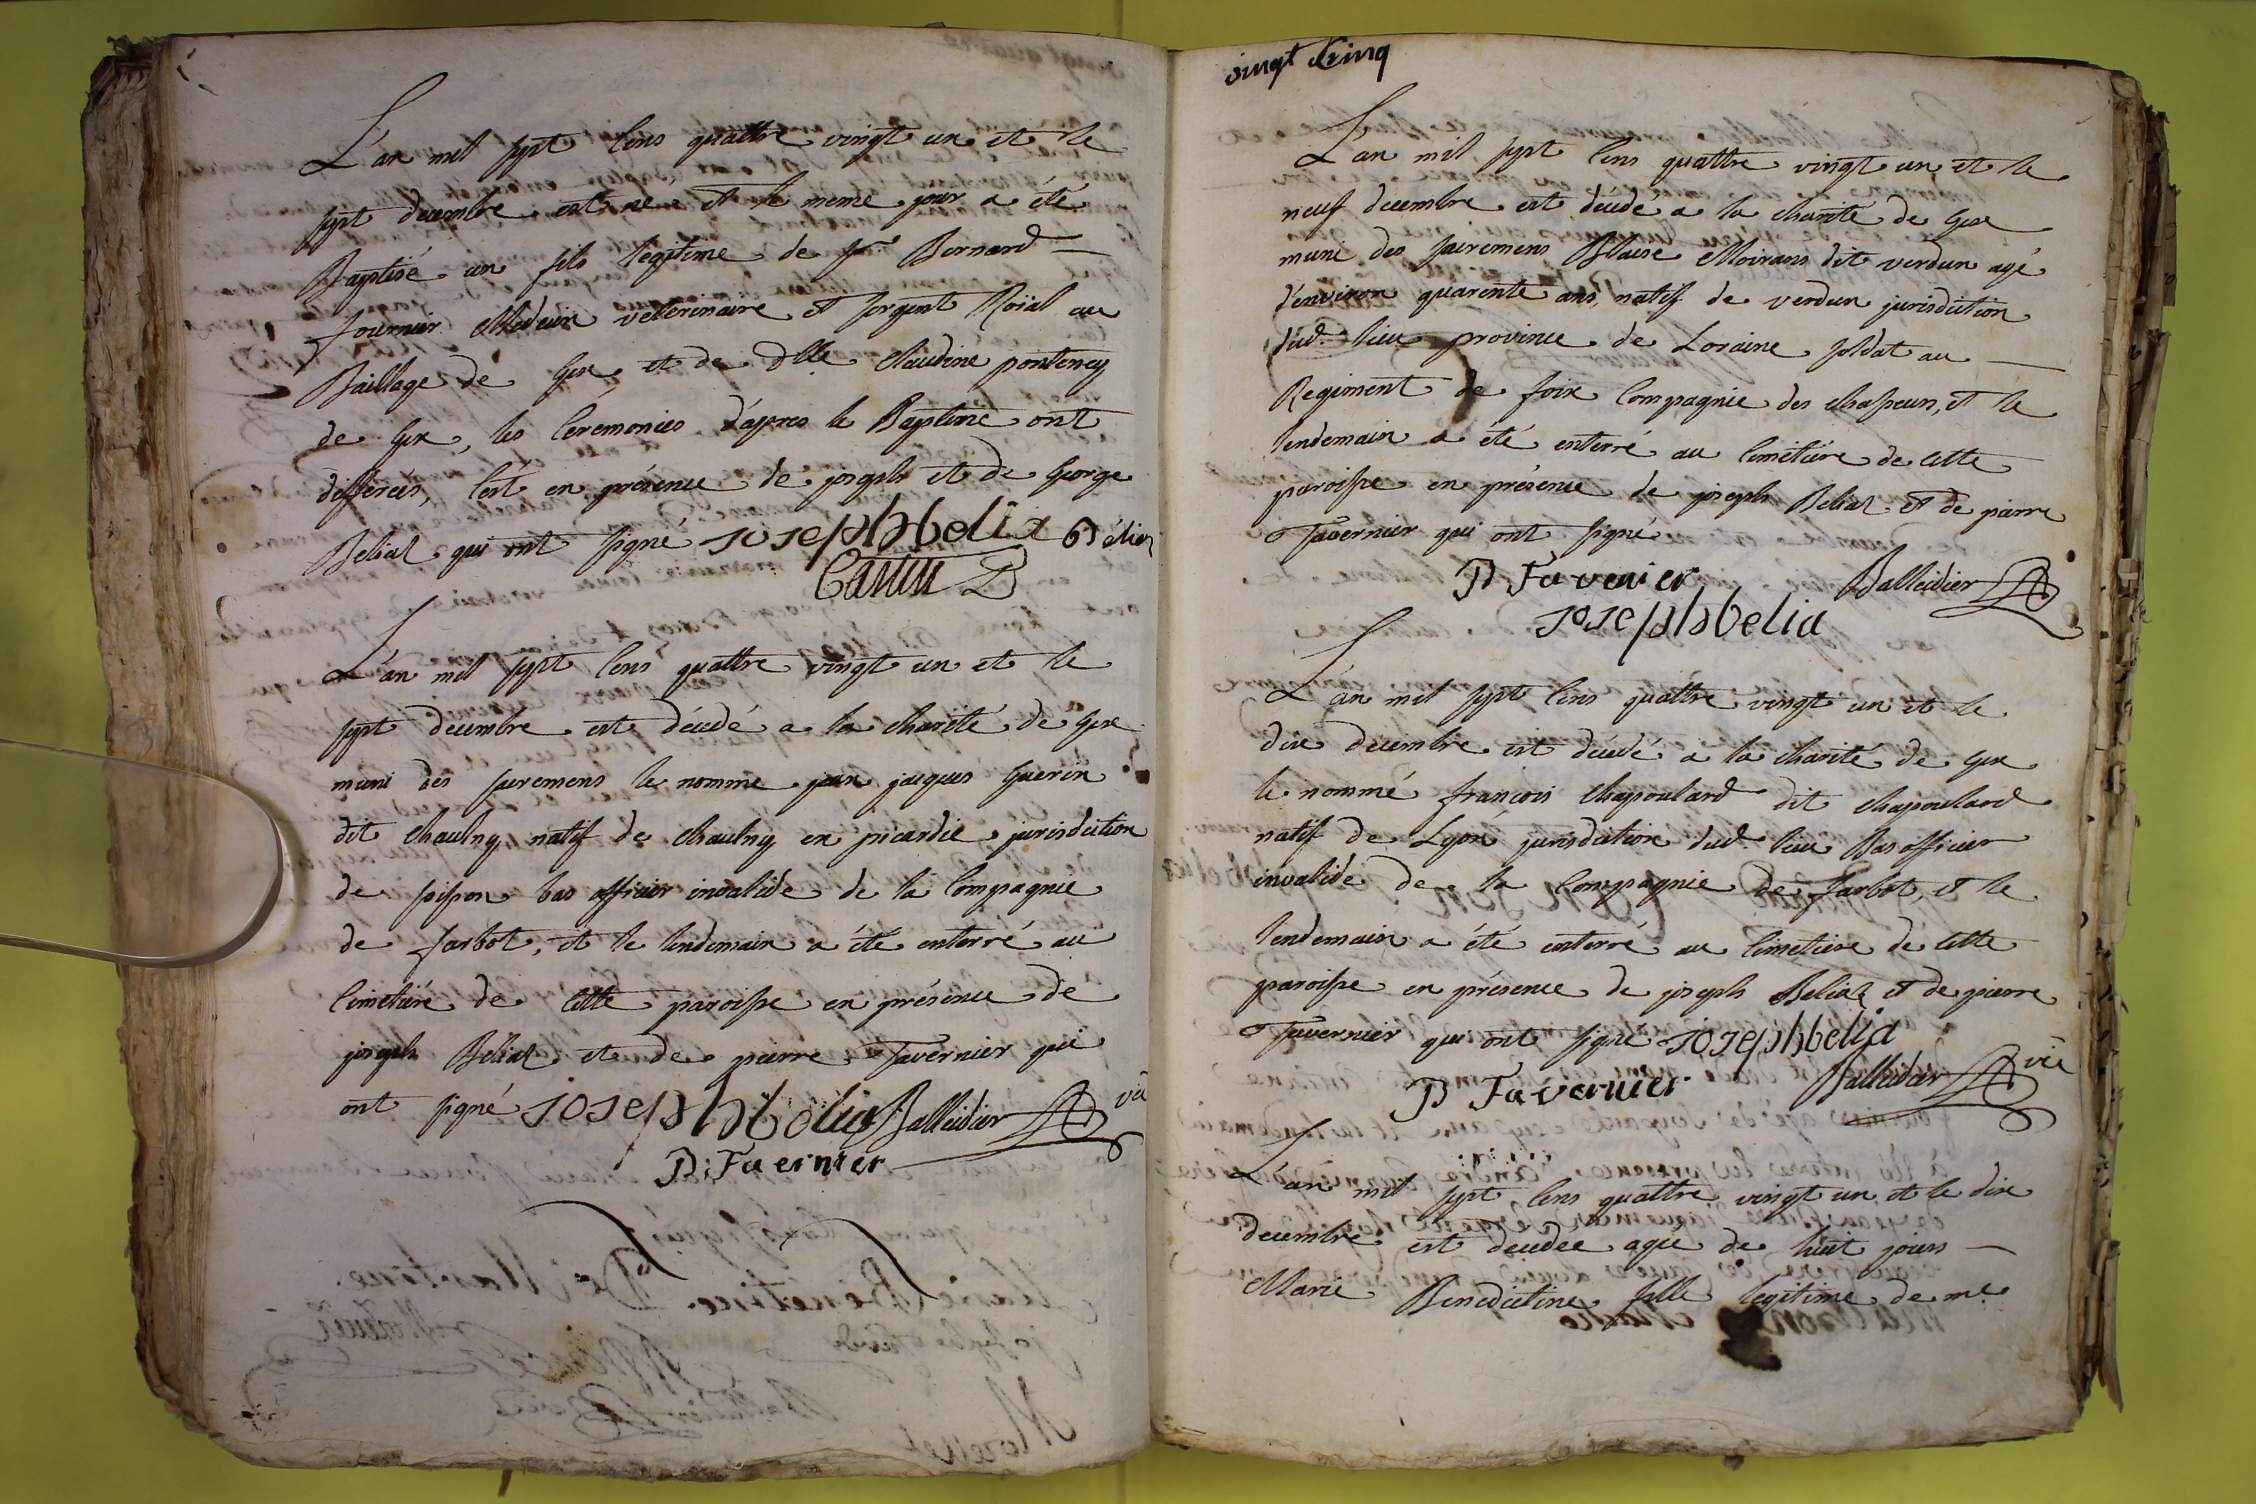 L'an mil sept cens quattre vingt un et le
sept decembre est né et le meme jour a été
Baptisé un fils legitime de Bernard
fournier Medecin veterinaire et sergent Roïal au
Baillage de Gex et de dlle Claudine pontency
de Gex, les Cérémonies d'apres le Baptême ont
differées, c'est en présence de joseph et de George
Beliat qui ont signé JOSephbelia Bélia
L'an mil sept cens quattre vingt un et le
sept decembre est décédé a la charité de Gex
muni des sacremens le nomme jean jacques Guerin
dit Chaulny natif de Chaulny en picardie jurisdiction
de soisson bas officier invalide de la Compagnie
de farbot, et le lendemain a été enterré au
Cimetiére de cette paroisse en présence de
joseph Beliat et de pierre Favernier qui
ont signé JOSephbelia Balleidier vic
P. Favernier
vingt cinq
L'an mil sept cens quattre vingt un et le
neuf decembre est décédé a la charité de Gex
muni des sacremens Blaise Moirans dit verdun agé
d'environ quarente ans, natif de verdun jurisdiction
dud. lieu province de Loraine soldat au
Regiment de foix Compagnie des chasseurs, et le
lendemain a été enterré au Cimétiére de cette
paroisse en présence de joseph Beliat et de pierre
Favernier qui ont signé
P Favernier Balleidier
JOSephbelia
L'an mil sept cens quattre vingt un et le
dix decembre est décédé a la charité de Gex
le nommé françois Chapoulard dit Chapoulard
natif de Lyon jurisdiction dud. lieu Bas officier
invalide de la Compagnie de farbot, et le
lendemain a été enterré au Cimetiere de cette
paroisse en présence de joseph Beliat et de pierre
Favernier qui ont signé JOSephbelia
P Favernier Balleidier vic
L'an mil sept cens quattre vingt un et le dix
decembre est decedée agée de huit jours
Marie Benedictine fille legitime de me